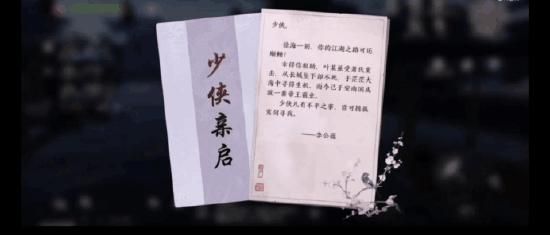 少侠亲启
少侠,
徐海一别,你的江湖之路可还
顺畅?
幸得你相助,叶某虽受若氏重
击,从长城坠下却不死,于茫茫大
海中寻得生机,而今已于安南国成
就一番帝王霸业。
少侠凡有不平之事,皆可携孤
寒剑寻我。